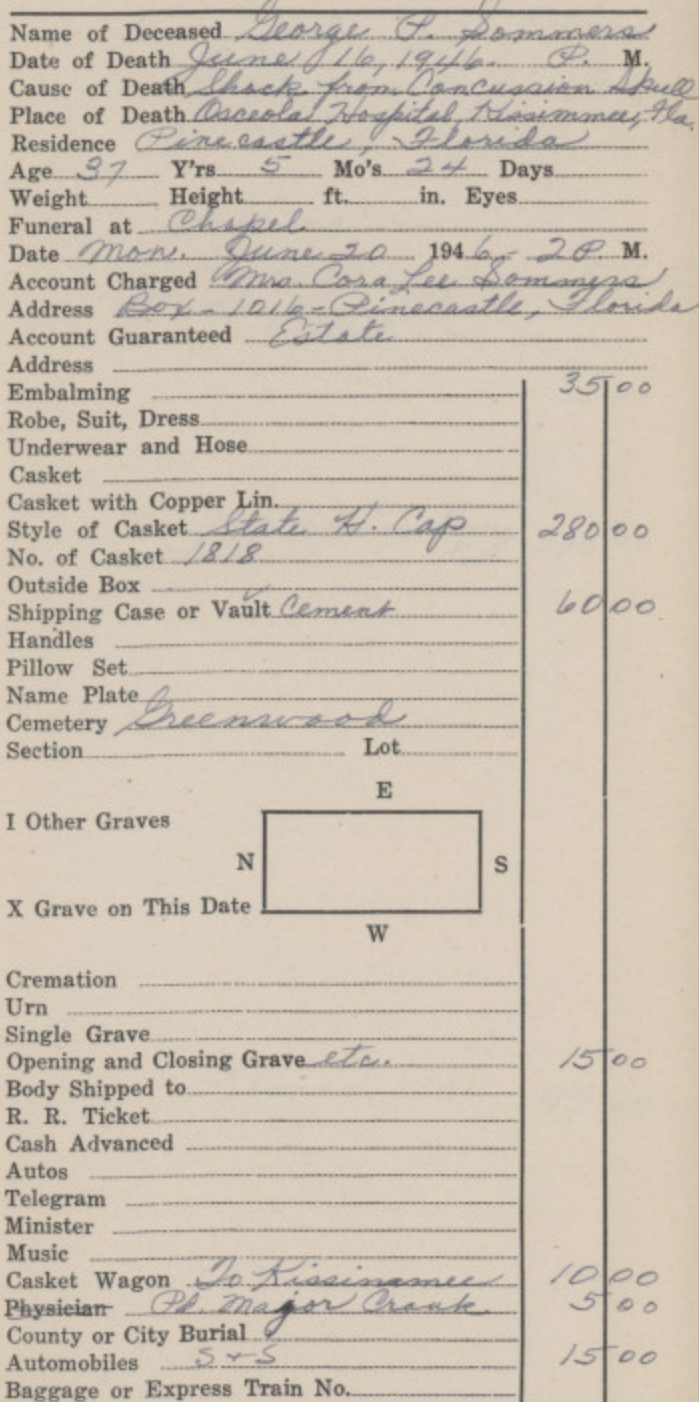 Name of Deceased George P. Sommers
Date of Death June 16, 1946 P. M.
Cause of Death Shock from Concussion Skull
Place of Death Osceola Hospital, Kissimmee, Fla.
Residence Pinecastle, Florida
Age 37 Y'rs 5 Mo's 24 Days
Weight Height ft. in. Eyes
Funeral at Chapel
Date Mon. June 20 1946 - 2 P. M.
Account Charged Mrs. Cora Lee Sommers
Address Box - 1016 - Pinecastle, Florida
Account Guaranteed Estate
Address
Embalming 35 00
Robe, Suit, Dress
Underwear and Hose
Casket
Casket with Copper Lin.
Style of Casket State H. Cap 280 00
No. of Casket 1818
Outside Box
Shipping Case or Vault Cement 60 00
Handles
Pillow Set
Name Plate
Cemetery Greenwood
Section Lot
E
I Other Graves
N S
X Grave on This Date
W
Cremation
Urn
Single Grave
Opening and Closing Grave etc. 15 00
Body Shipped to
R. R. Ticket
Cash Advanced
Autos
Telegram
Minister
Music
Casket Wagon To Kissinamee 10 00
Physician Pd. Major Crank 5 00
County or City Burial
Automobiles S + S 15 00
Baggage or Express Train No.